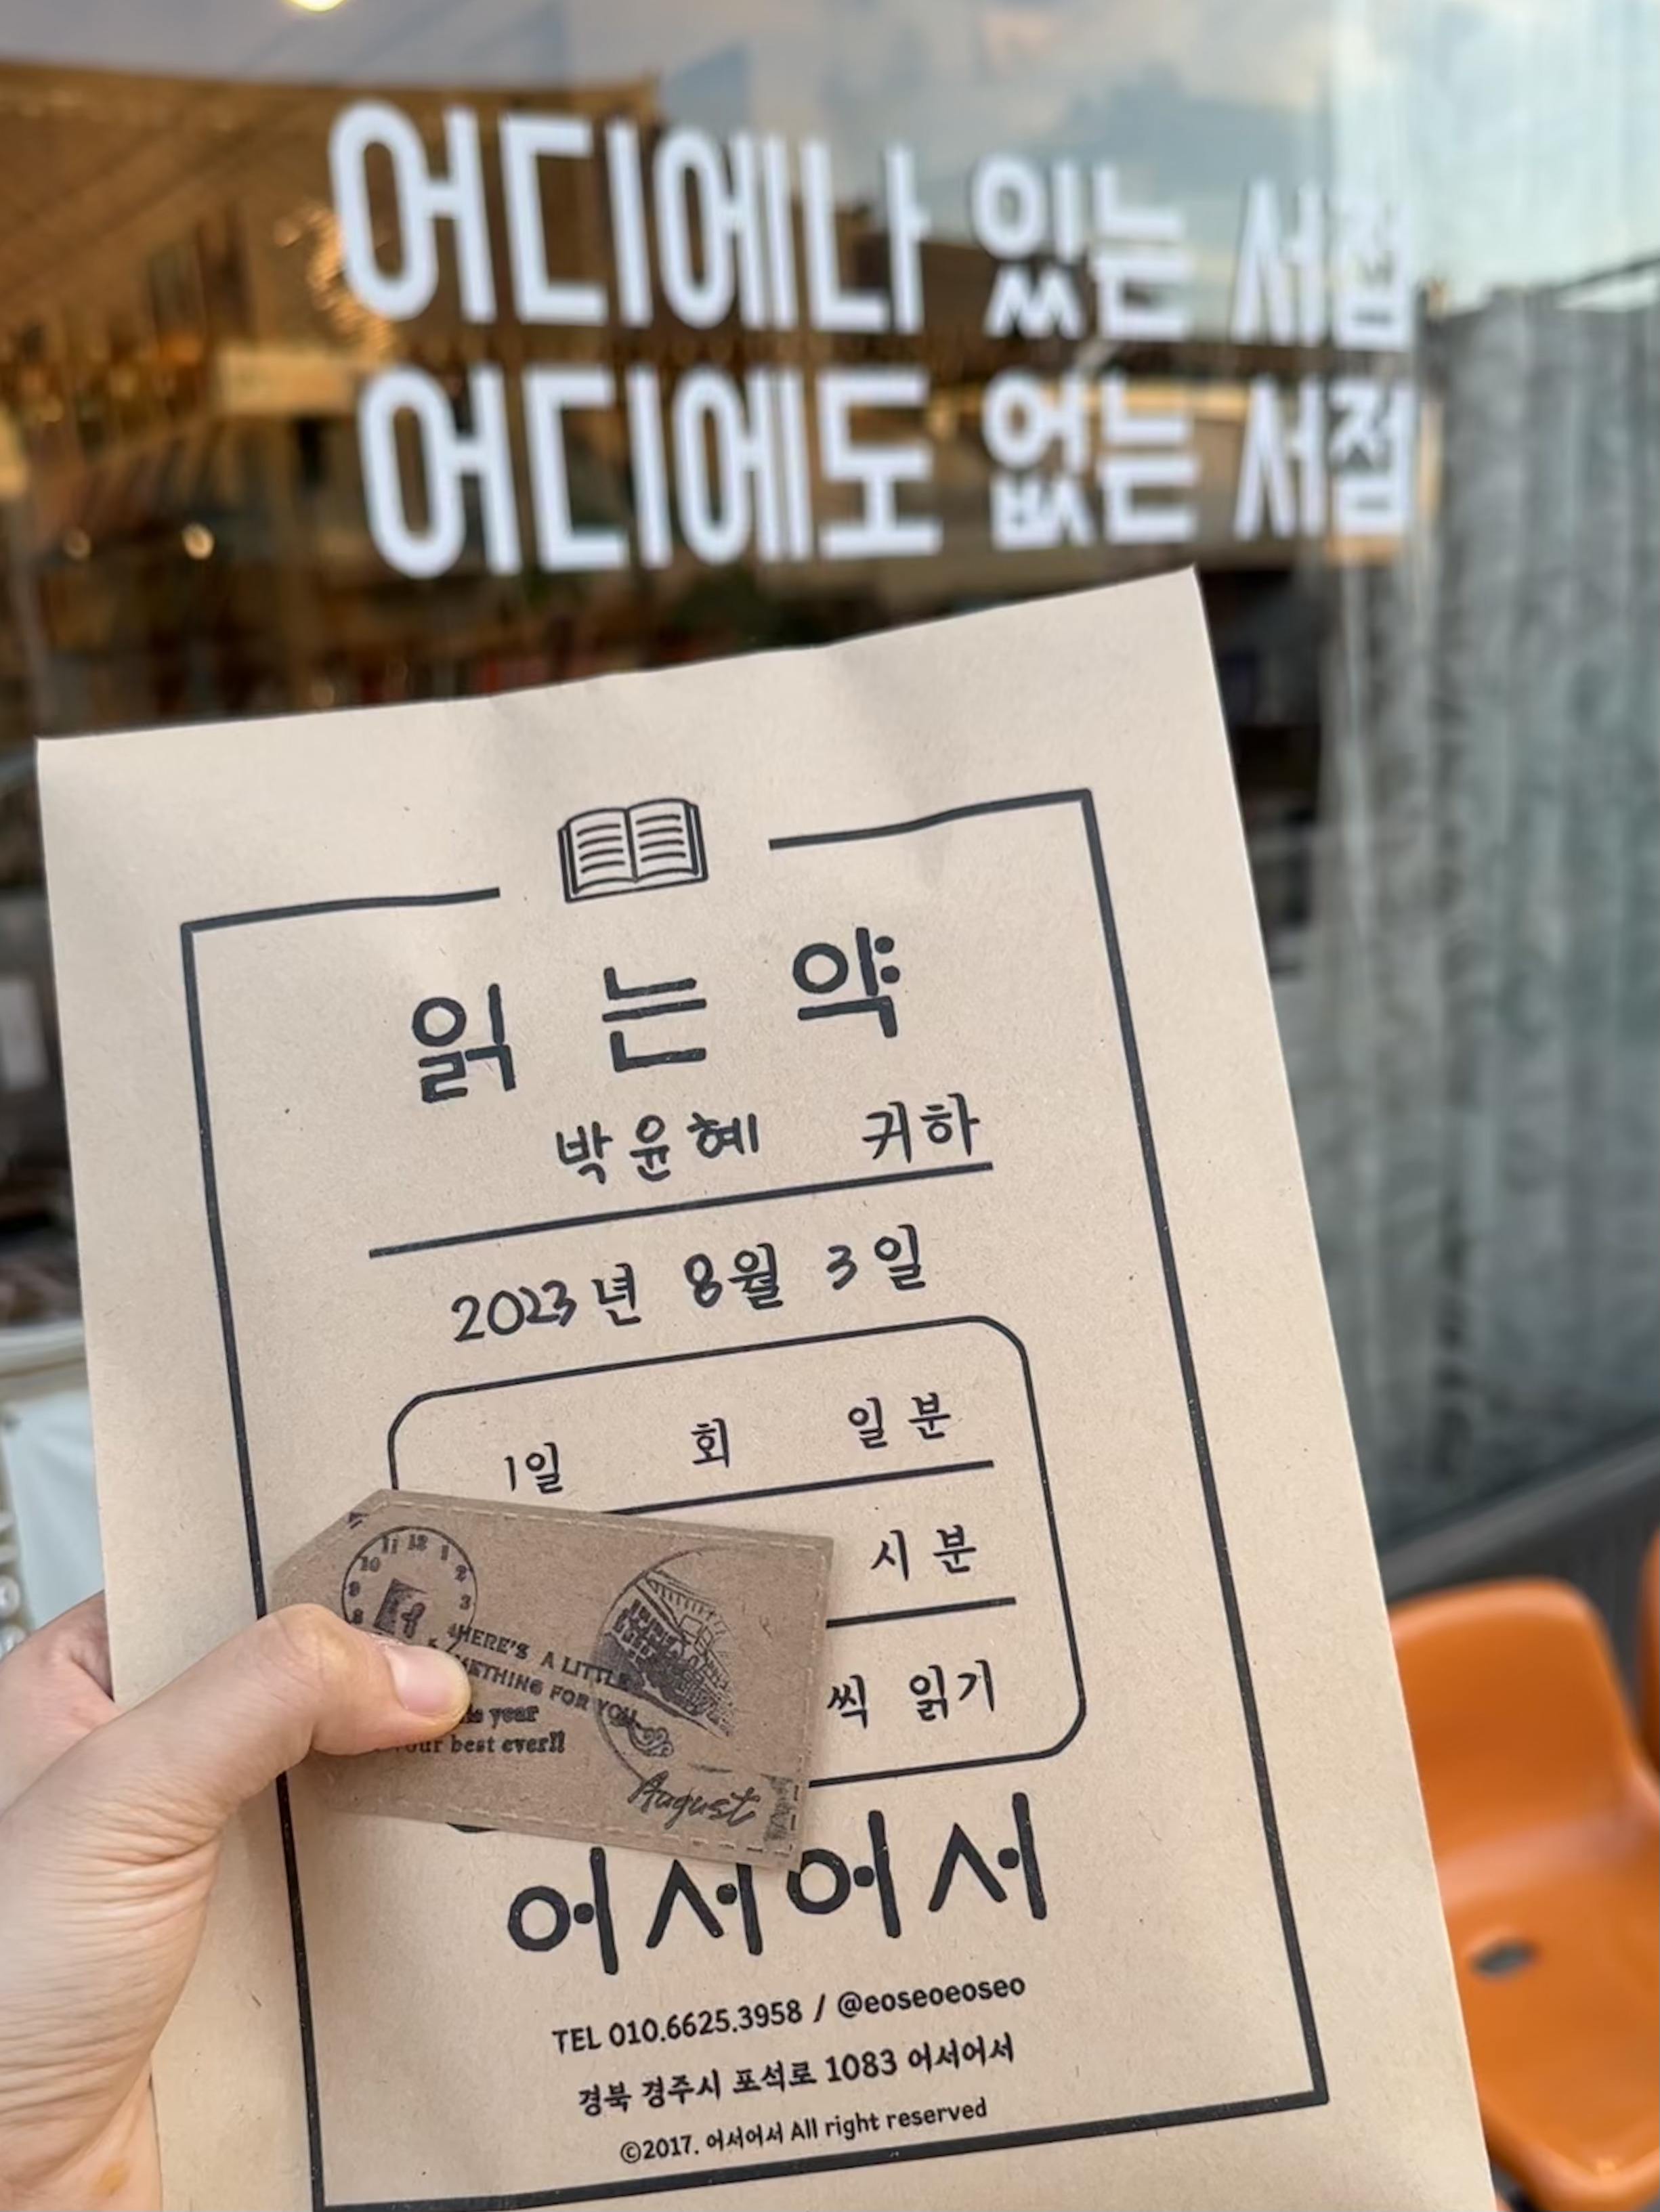 어디에나 있는 서점
어디에도 없는 서점
읽는 약
박윤혜 귀하
2023년 8월 3일
1일 회 일분
시분
씩 읽기
11 12 1
10 2
9 3
8 4
HERE'S A LITTLE
THING FOR YOU
year
our best ever!!
August
어서어서
TEL 010.6625.3958 / @eoseoeoseo
경북 경주시 포석로 1083 어서어서
©2017. 어서어서 All right reserved